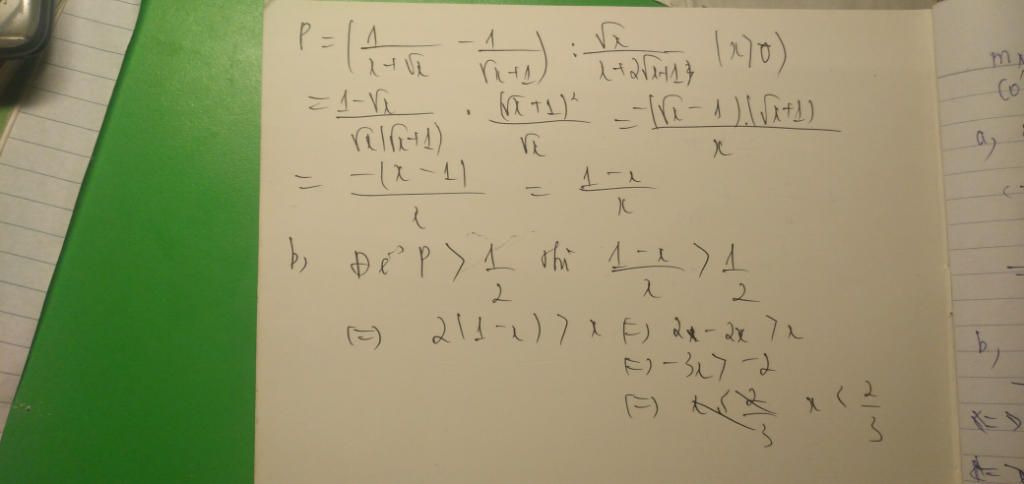 P = ( 1/(x+√x) - 1/(√x+1) ) : √x/(x+2√x+1) (x>0)
= (1-√x)/(√x(√x+1)) . (√x+1)²/√x = -(√x-1).(√x+1)/x
= -(x-1)/x = (1-x)/x
b, Để P > 1/2 thì (1-x)/x > 1/2
(=) 2(1-x) > x (=) 2x-2x > x
(=) -3x > -2
(=) x < 2/3 x < 2/3
a,
b,